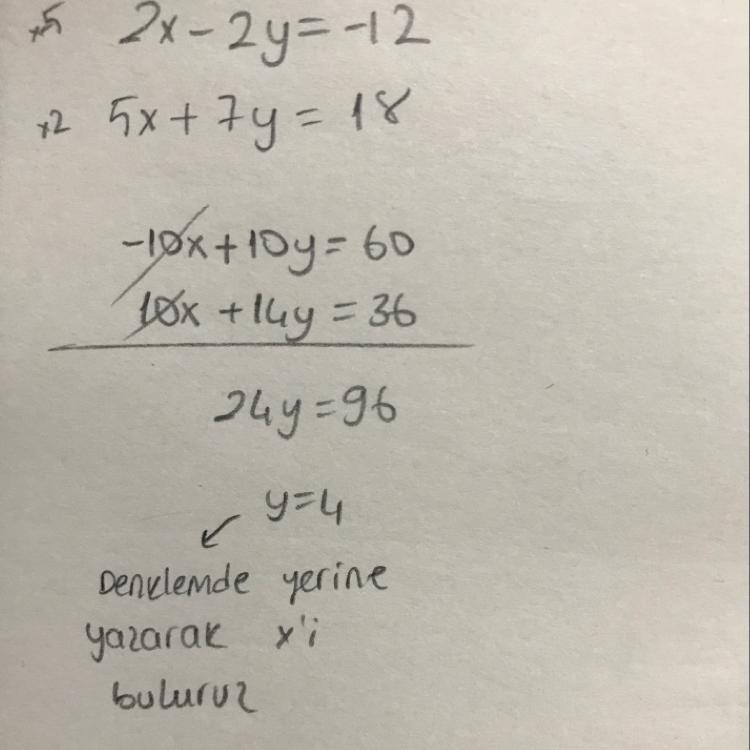 x5 2x-2y=-12
x2 5x+7y=18
-10x+10y=60
10x+14y=36
24y=96
y=4
Denklemde yerine
yazarak x'i
buluruz